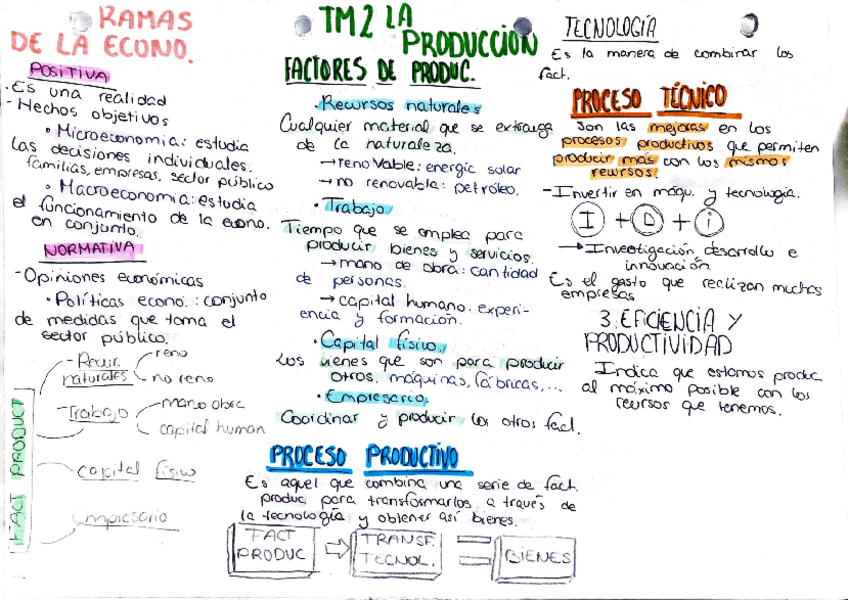 RAMAS
DE LA ECONO.
POSITIVA
· Es una realidad
- Hechos objetivos
• Microeconomia: estudia
las decisiones individuales.
familias, empresas, sector público
• Macroeconomia: estudia
el funcionamiento de la econo.
en conjunto.
NORMATIVA
- Opiniones económicas
• Políticas econo.: conjunto
de medidas que toma el
sector público.
FACT PRODUCT
- Recur. naturales
reno
no reno
- Trabajo
mano obra
capital human
capital físico
empresario
TM2 LA
PRODUCCIÓN
FACTORES DE PRODUC.
· Recursos naturales
Cualquier material que se extraiga
de la naturaleza.
→ renovable: energía solar
→ no renovable: petróleo.
· Trabajo
Tiempo que se emplea para
producir bienes y servicios.
→ mano de obra: cantidad
de personas.
→ capital humano: experi-
encia y formación.
· Capital físico.
Los bienes que son para producir
otros. máquinas, fábricas,...
· Empresario.
Coordinar y producir los otros fact.
PROCESO PRODUCTIVO
Es aquel que combina una serie de fact.
produc para transformarlos a través de
la tecnología y obtener así bienes.
FACT
PRODUC
⇨
TRANSF.
TECNOL.
=
BIENES
TECNOLOGÍA
Es la manera de combinar los
fact.
PROCESO TÉCNICO
Son las mejoras en los
procesos productivos que permiten
producir más con los mismos
recursos.
- Invertir en máqu. y tecnología.
I + D + i
→ Investigación, desarrollo e
innovación
Es el gasto que realizan muchas
empresas
3. EFICIENCIA Y
PRODUCTIVIDAD
Indica que estamos produc
al máximo posible con los
recursos que tenemos.